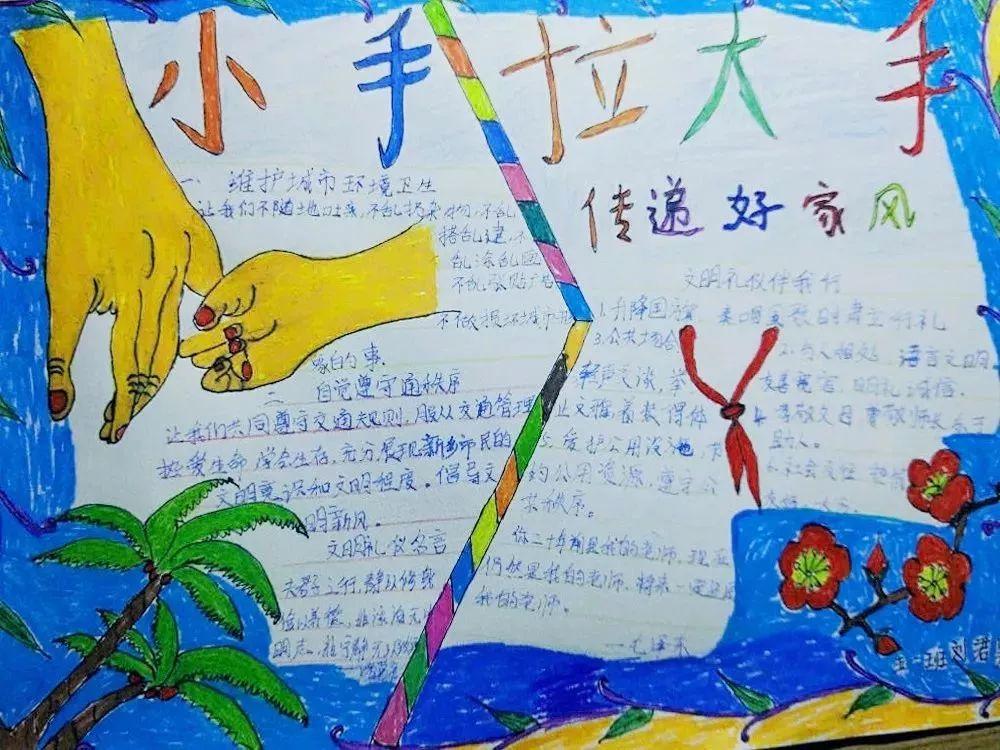 小手拉大手
传递好家风
一、维护城市环境卫生
让我们不随地吐痰,不乱扔杂物,不乱
搭乱建,不
乱涂乱画
不乱张贴广告
不做损坏城市形
象的事.
二 自觉遵守通秩序
让我们共同遵守交通规则,服从交通管理
热爱生命,学会生存,充分展现新乡市民的
文明意识和文明程度。倡导文
明新风。
文明礼仪名言
夫君子之行,静以修身
俭以养德,非淡泊无以
明志,
文明礼仪伴我行
1.升降国旗,奏唱国歌时肃立行礼
2.与人相处,语言文明
3.公共场合
轻声交谈,举
止文雅,着装得体
友善宽容,明礼诚信.
4.尊敬父母尊敬师长
5.爱护公用设施,节
约公用资源,遵守公
共秩序。
6.社会交往
你二十年前是我的先师,现在
仍然是我的先师,将来一定还是
我的先师。
——毛泽东
班刘